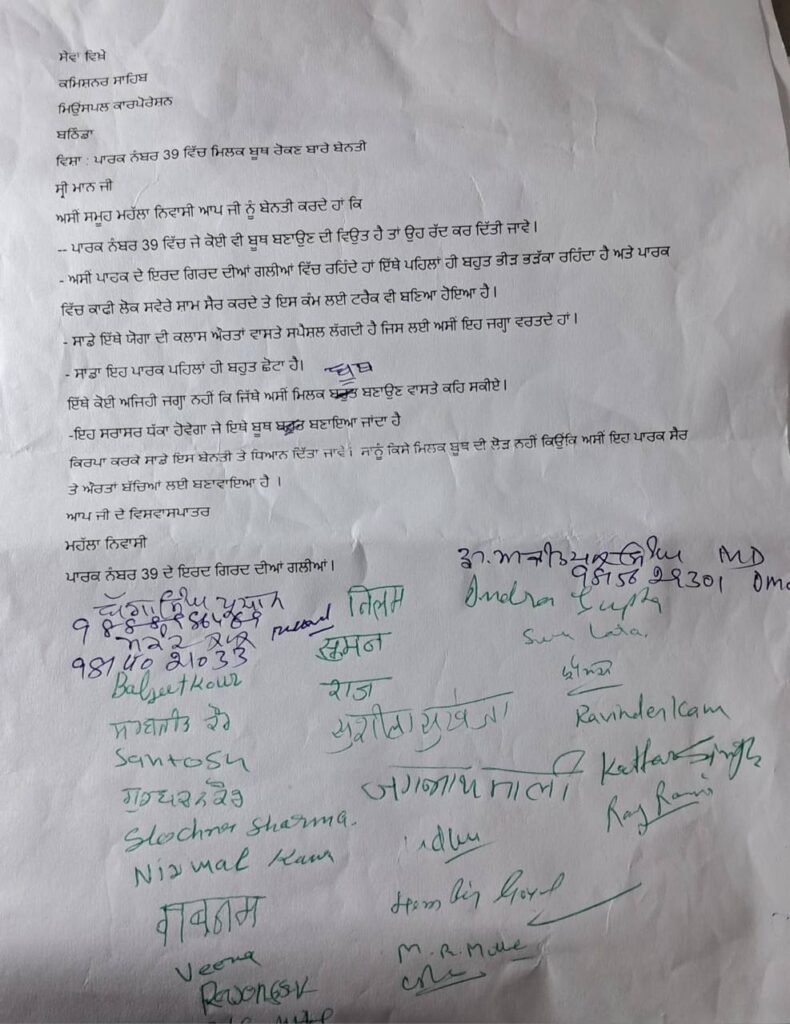 ਸੇਵਾ ਵਿਖੇ
ਕਮਿਸ਼ਨਰ ਸਾਹਿਬ
ਮਿਉਂਸਪਲ ਕਾਰਪੋਰੇਸ਼ਨ
ਬਠਿੰਡਾ
ਵਿਸ਼ਾ : ਪਾਰਕ ਨੰਬਰ 39 ਵਿੱਚ ਮਿਲਕ ਬੂਥ ਰੋਕਣ ਬਾਰੇ ਬੇਨਤੀ
ਸ੍ਰੀ ਮਾਨ ਜੀ
ਅਸੀਂ ਸਮੂਹ ਮਹੱਲਾ ਨਿਵਾਸੀ ਆਪ ਜੀ ਨੂੰ ਬੇਨਤੀ ਕਰਦੇ ਹਾਂ ਕਿ
-- ਪਾਰਕ ਨੰਬਰ 39 ਵਿੱਚ ਜੇ ਕੋਈ ਵੀ ਬੂਥ ਬਣਾਉਣ ਦੀ ਵਿਉਤ ਹੈ ਤਾਂ ਉਹ ਰੱਦ ਕਰ ਦਿੱਤੀ ਜਾਵੇ ।
- ਅਸੀਂ ਪਾਰਕ ਦੇ ਇਰਦ ਗਿਰਦ ਦੀਆਂ ਗਲੀਆਂ ਵਿੱਚ ਰਹਿੰਦੇ ਹਾਂ ਇੱਥੇ ਪਹਿਲਾਂ ਹੀ ਬਹੁਤ ਭੀੜ ਭੜੱਕਾ ਰਹਿੰਦਾ ਹੈ ਅਤੇ ਪਾਰਕ
ਵਿੱਚ ਕਾਫੀ ਲੋਕ ਸਵੇਰੇ ਸਾਮ ਸੈਰ ਕਰਦੇ ਤੇ ਇਸ ਕੰਮ ਲਈ ਟਰੈਕ ਵੀ ਬਣਿਆ ਹੋਇਆ ਹੈ ।
- ਸਾਡੇ ਇੱਥੇ ਯੋਗਾ ਦੀ ਕਲਾਸ ਔਰਤਾਂ ਵਾਸਤੇ ਸਪੈਸ਼ਲ ਲੱਗਦੀ ਹੈ ਜਿਸ ਲਈ ਅਸੀਂ ਇਹ ਜਗ੍ਹਾ ਵਰਤਦੇ ਹਾਂ ।
- ਸਾਡਾ ਇਹ ਪਾਰਕ ਪਹਿਲਾਂ ਹੀ ਬਹੁਤ ਛੋਟਾ ਹੈ।
ਬੂਥ
ਇੱਥੇ ਕੋਈ ਅਜਿਹੀ ਜਗ੍ਹਾ ਨਹੀਂ ਕਿ ਜਿੱਥੇ ਅਸੀਂ ਮਿਲਕ ਬਹੁਤ ਬਣਾਉਣ ਵਾਸਤੇ ਕਹਿ ਸਕੀਏ ।
-ਇਹ ਸਰਾਸਰ ਧੱਕਾ ਹੋਵੇਗਾ ਜੇ ਇਥੇ ਬੂਥ ਬਹੁਤ ਬਣਾਇਆ ਜਾਂਦਾ ਹੈ
ਕਿਰਪਾ ਕਰਕੇ ਸਾਡੇ ਇਸ ਬੇਨਤੀ ਤੇ ਧਿਆਨ ਦਿੱਤਾ ਜਾਵੇ। ਸਾਨੂੰ ਕਿਸੇ ਮਿਲਕ ਬੂਥ ਦੀ ਲੋੜ ਨਹੀਂ ਕਿਉਂਕਿ ਅਸੀਂ ਇਹ ਪਾਰਕ ਸੈਰ
ਤੇ ਔਰਤਾਂ ਬੱਚਿਆਂ ਲਈ ਬਣਾਵਾਇਆ ਹੈ ।
ਆਪ ਜੀ ਦੇ ਵਿਸਵਾਸਪਾਤਰ
ਮਹੱਲਾ ਨਿਵਾਸੀ
ਪਾਰਕ ਨੰਬਰ 39 ਦੇ ਇਰਦ ਗਿਰਦ ਦੀਆਂ ਗਲੀਆਂ ।
MD
98156 29301
98140 21033
ਤਿਲਮ
Indra Gupta
ਸੁਮਨ
Baljeet Kour
ਰਾਜ
ਸਰਬਜੀਤ ਕੌਰ
सुशीला सुखेजा
Ravinder Kam
Santosh
ਗੁਰਚਰਨ ਕੌਰ
ਜਗਨਨਾਥ ਮਾਲੀ
Kartar Singh
Slochna Sharma.
Raj Rani
Nirmal Kaur
Veena